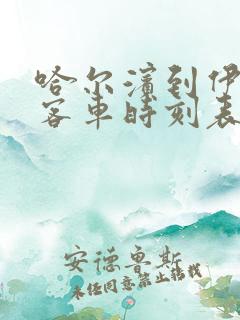 哈尔滨到伊
客车时刻表
安德鲁斯
未经同意禁止转载